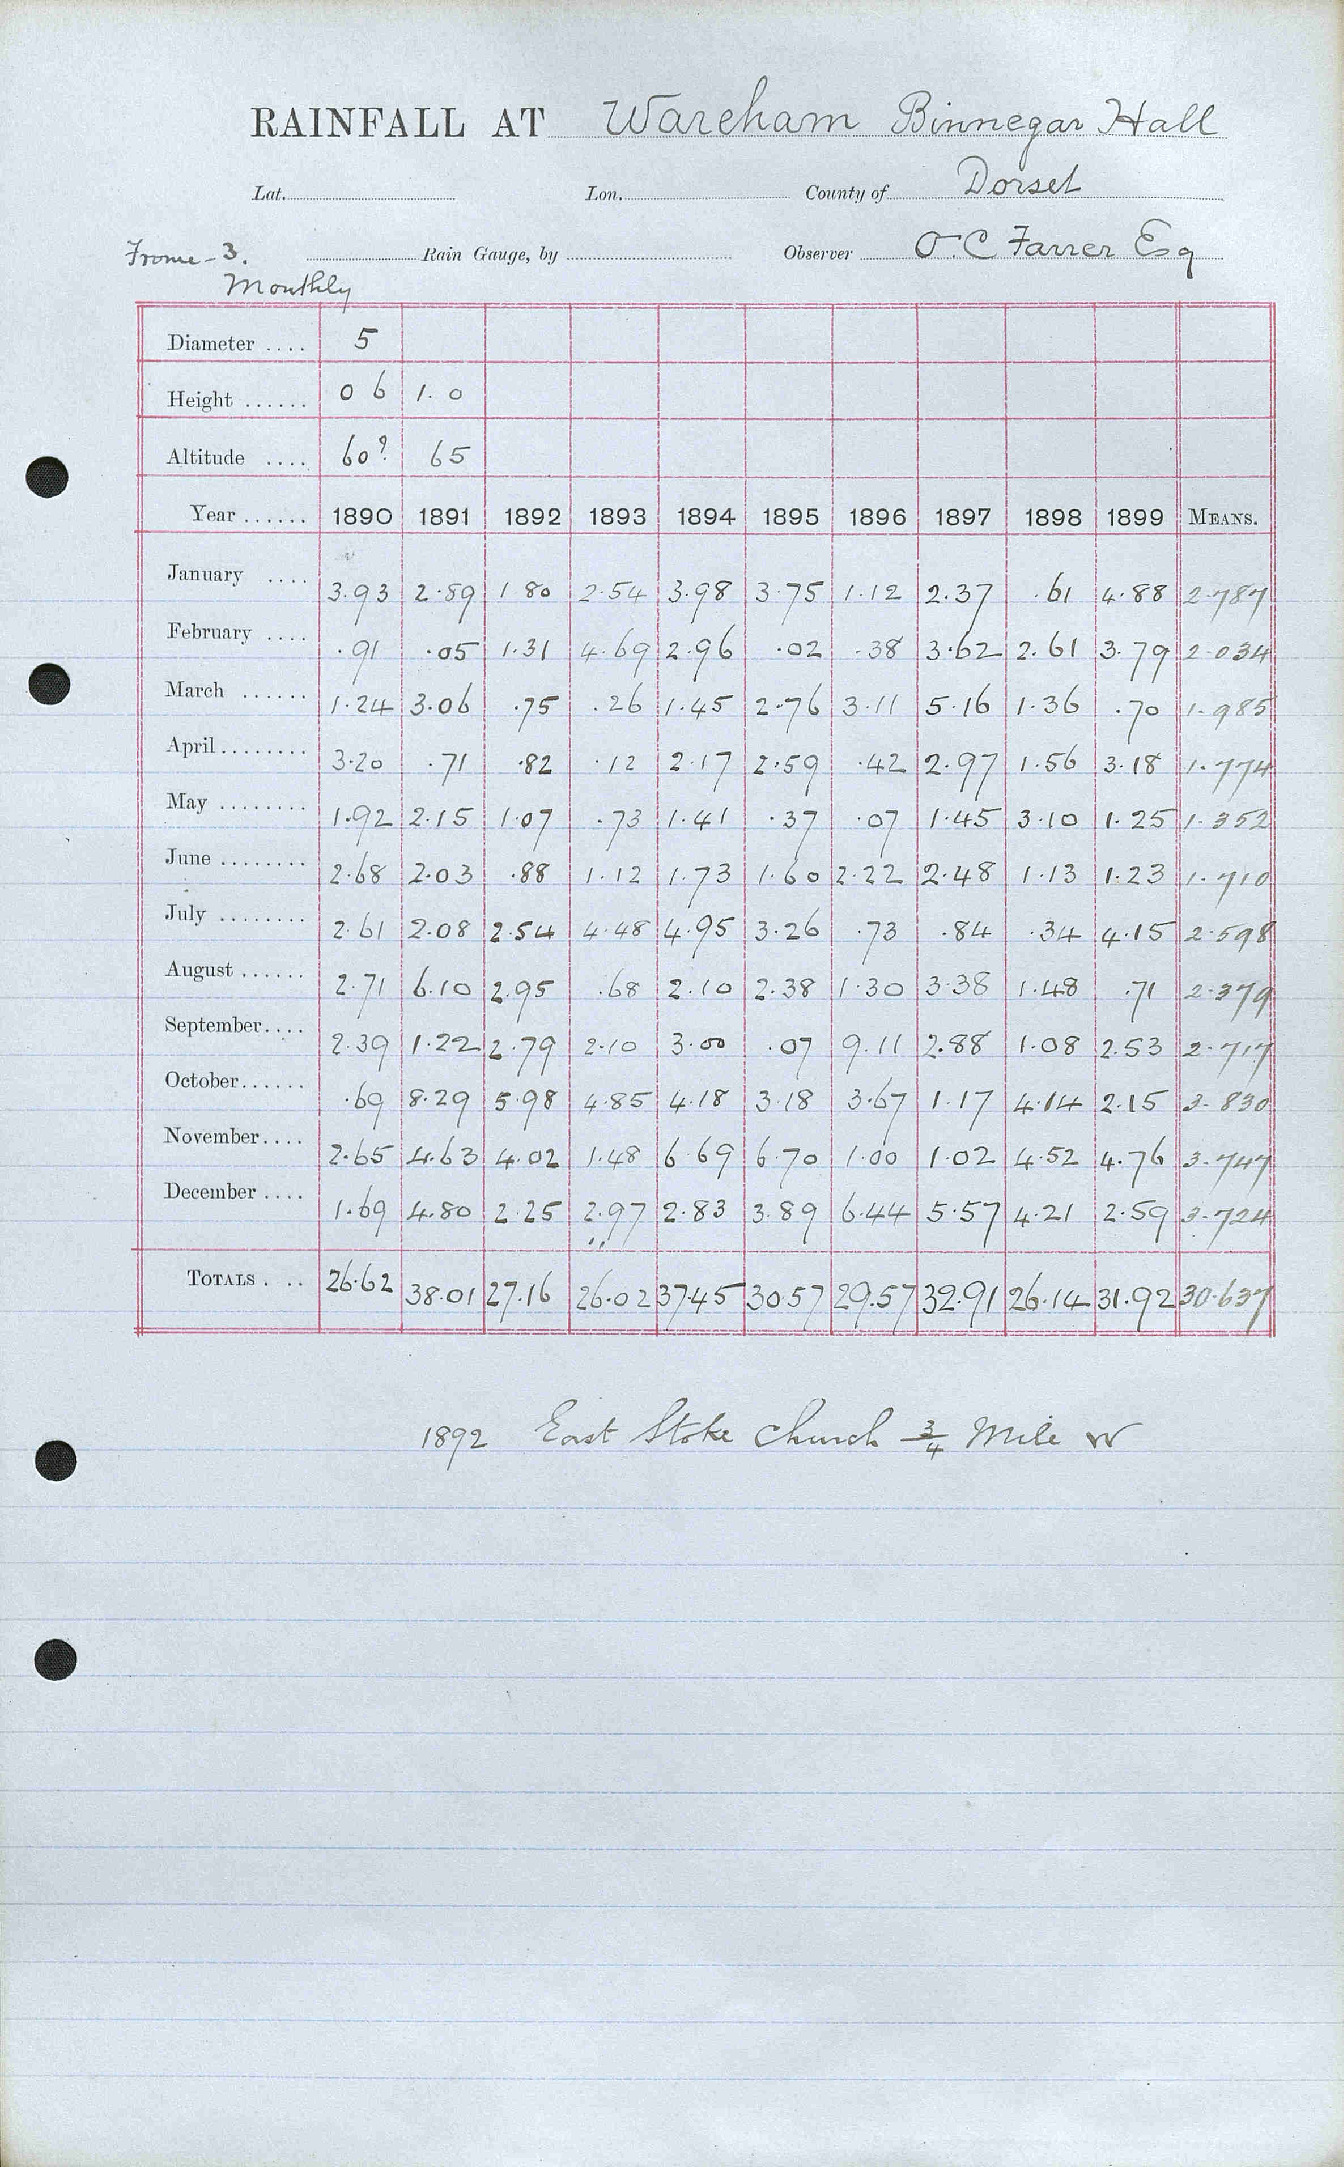 RAINFALL AT Wareham Binnegar Hall
Lat. Lon. County of Dorset
Frome - 3. Rain Gauge, by Observer O. C Farrer Esq
Monthly
Diameter .... 5
Height ...... 0 6 1. 0
Altitude .... 60? 65
Year ...... 1890 1891 1892 1893 1894 1895 1896 1897 1898 1899 MEANS.
January .... 3.93 2.89 1.80 2.54 3.98 3.75 1.12 2.37 .61 4.88 2.787
February .... .91 .05 1.31 4.69 2.96 .02 .38 3.62 2.61 3.79 2.034
March ...... 1.24 3.06 .75 .26 1.45 2.76 3.11 5.16 1.36 .70 1.985
April ........ 3.20 .71 .82 .12 2.17 2.59 .42 2.97 1.56 3.18 1.774
May ........ 1.92 2.15 1.07 .73 1.41 .37 .07 1.45 3.10 1.25 1.352
June ........ 2.68 2.03 .88 1.12 1.73 1.60 2.22 2.48 1.13 1.23 1.710
July ........ 2.61 2.08 2.54 4.48 4.95 3.26 .73 .84 .34 4.15 2.598
August ...... 2.71 6.10 2.95 .68 2.10 2.38 1.30 3.38 1.48 .71 2.379
September .... 2.39 1.22 2.79 2.10 3.00 .07 9.11 2.88 1.08 2.53 2.717
October ...... .69 8.29 5.98 4.85 4.18 3.18 3.67 1.17 4.14 2.15 3.830
November .... 2.65 4.63 4.02 1.48 6.69 6.70 1.00 1.02 4.52 4.76 3.747
December .... 1.69 4.80 2.25 2.97 2.83 3.89 6.44 5.57 4.21 2.59 3.724
TOTALS . .. 26.62 38.01 27.16 26.02 37.45 30.57 29.57 32.91 26.14 31.92 30.637
1892 East Stoke Church 3/4 Mile W